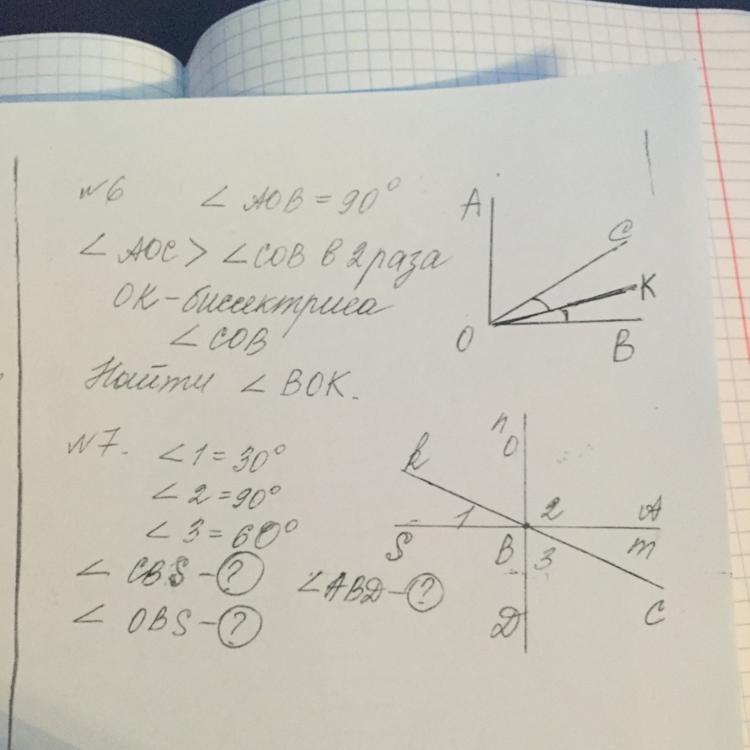 №6 ∠ AOB = 90°
∠ AOC > ∠COB в 2 раза
OK - биссектриса
∠ COB
Найти ∠ BOK.
A
C
K
O
B
№7. ∠1 = 30°
∠2 = 90°
∠3 = 60°
∠ CBS - ?
∠ABD - ?
∠ OBS - ?
n
O
k
1
2
A
S
B
3
m
D
C